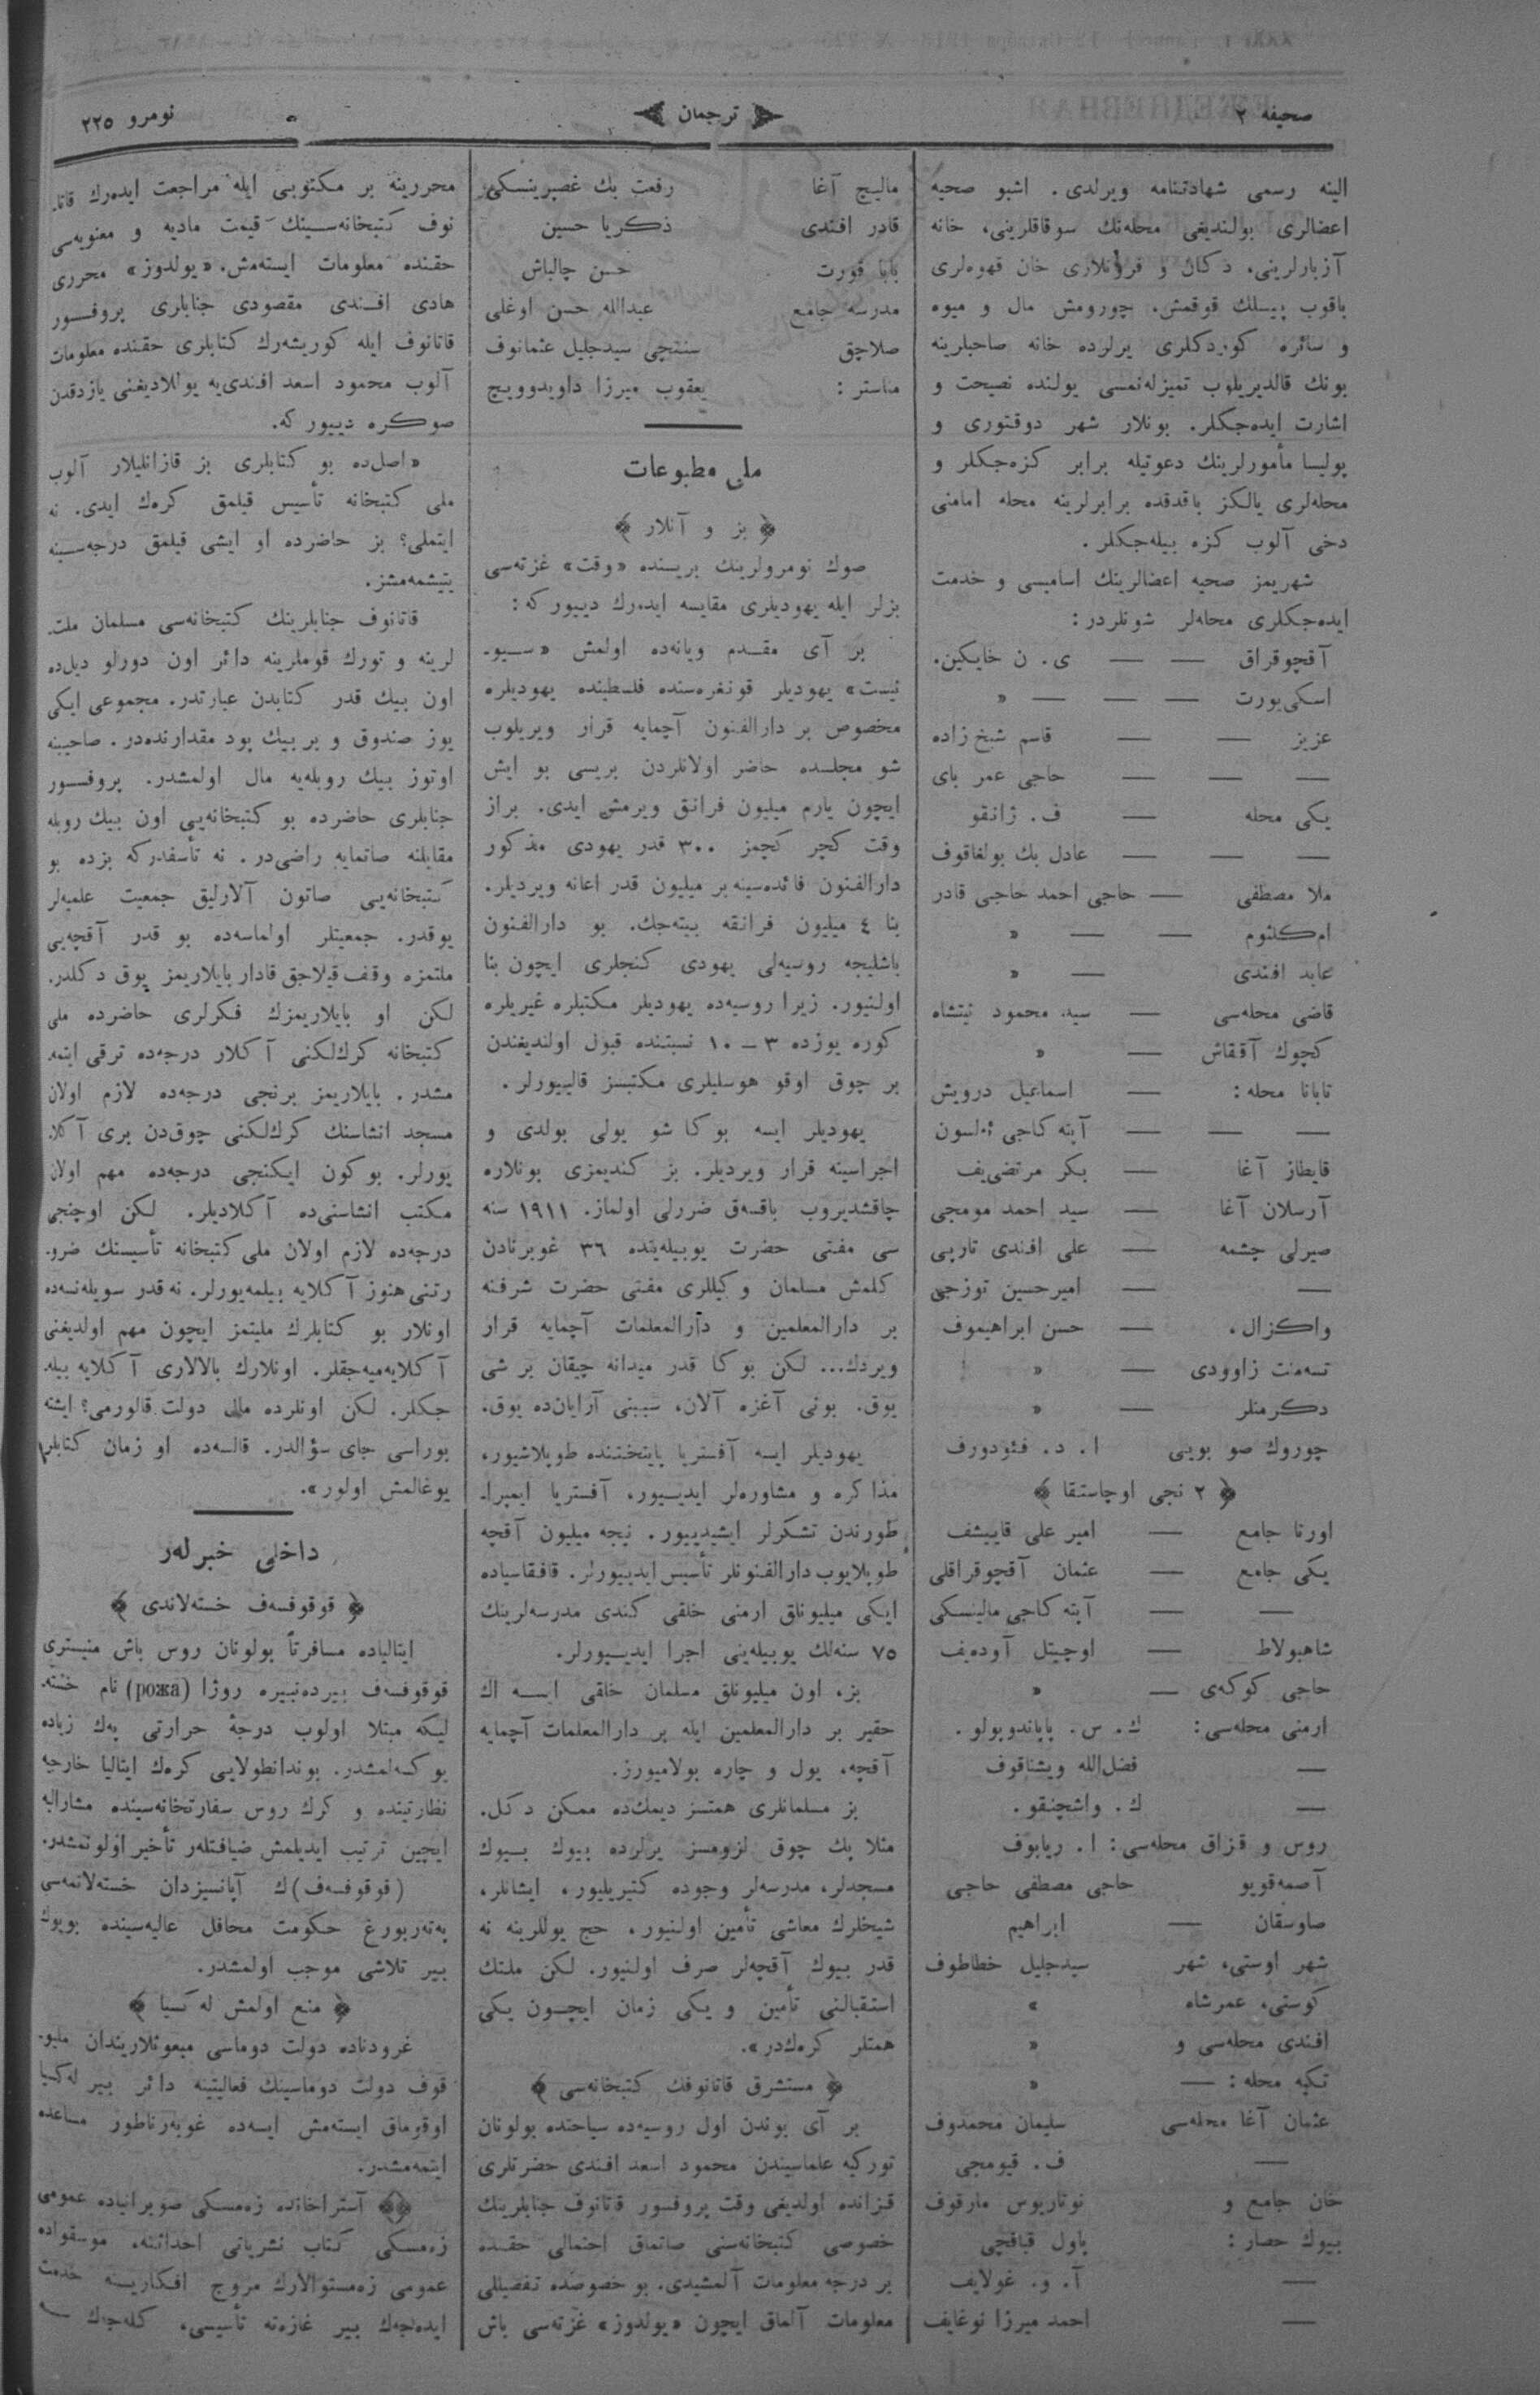 صحیفه ٢
ترجمان
نومرو ٢٢٥
الینه رسمی شهادتنامه ویرلدی. اشبو صحیه
اعضالری بولندیغی محله‌نك سوقاقلرینی، خانه
آزبارلرینی، دكان و فرونلاری خان قهوه‌لری
باقوب پیسلك قوقمش، چورومش مال و میوه
و سائره كوردكلری یرلرده خانه صاحبلرینه
بونك قالدیریلوب تمیزله‌نمسی یولنده نصیحت و
اشارت ایده‌جكلر. بونلار شهر دوقتوری و
پولیسا مأمورلرینك دعوتیله برابر كزه‌جكلر و
محله‌لری یالكز باقدقده برابرلرینه محله امامنی
دخی آلوب كزه بیله‌جكلر.
شهریمز صحیه اعضالرینك اسامیسی و خدمت
ایده‌جكلری محله‌لر شونلردر:
آقچوقراق — — ی. ن خایكین.
اسكی‌یورت — — — «
عزیز — — قاسم شیخ زاده
— — — حاجی عمر بای
یكی محله — ف. ژانقو
— — — عادل بك بولغاقوف
ملا مصطفی — حاجی احمد حاجی قادر
ام‌كلثوم — — «
عابد افندی — «
قاضی محله‌سی — سید محمود نیتشاه
كچوك آققاش — «
تابانا محله: — اسماعیل درویش
— — — آیته كاجی
قایطاز آغا — بكر مرتضی‌یف
آرسلان آغا — سید احمد مومجی
صیرلی چشمه — علی افندی تارپی
— — امیرحسین توزجی
واكزال، — حسن ابراهیموف
تسه‌منت زاوودی — «
دكرمنلر — «
چوروك صو بویی ا. د. فئودورف
﴿ ٢ نجی اوچاستقا ﴾
اورتا جامع — امیر علی قاییشف
یكی جامع — عثمان آقچوقراقلی
— — آیته كاجی مالینسكی
شاهبولاط — اوچیتل آوده‌یف
حاجی كوكه‌ی — «
ارمنی محله‌سی: ك. س. پاپاندوپولو.
— فضل‌الله ویشناقوف
— ك. واشچنقو.
روس و قزاق محله‌سی: ا. ریابوف
آصمه‌قویو حاجی مصطفی حاجی
صاوسقان — ابراهیم
شهر اوستی، شهر سیدجلیل خطاطوف
كوستی، عمرشاه »
افندی محله‌سی و «
تكیه محله: — «
عثمان آغا محله‌سی سلیمان محمدوف
— ف. قیومجی
خان جامع و نوتاریوس مارقوف
بیوك حصار: پاول قباقچی
— آ. و. غولایف
— احمد میرزا نوغایف
مالیچ آغا رفعت بك غصپرینسكی
قادر افندی ذكریا حسین
بابا قورت حسن چالباش
مدرسه جامع عبدالله حسن اوغلی
صلاچق سنتچی سیدجلیل عثمانوف
مناستر: یعقوب میرزا داویدوویچ
ملی مطبوعات
﴿ بز و آنلار ﴾
صوك نومرولرینك بریسنده «وقت» غزته‌سی
بزلر ایله یهودیلری مقایسه ایده‌رك دییور كه:
بر آی مقدم ویانه‌ده اولمش «سیو-
نیست» یهودیلر قونغره‌سنده فلسطینده یهودیلره
مخصوص بر دارالفنون آچمایه قرار ویریلوب
شو مجلسده حاضر اولانلردن بریسی بو ایش
ایچون یارم میلیون فرانق ویرمش ایدی. براز
وقت كچر كچمز ٣٠٠ قدر یهودی مذكور
دارالفنون فائده‌سینه بر میلیون قدر اعانه ویردیلر.
بنا ٤ میلیون فرانقه بیته‌جك. بو دارالفنون
باشلیجه روسیه‌لی یهودی كنجلری ایچون بنا
اولنیور. زیرا روسیه‌ده یهودیلر مكتبلره غیریلره
كوره یوزده ٣ – ١٠ نسبتنده قبول اولندیغندن
بر چوق اوقو هوسلیلری مكتبسز قالییورلر.
یهودیلر ایسه بوكا شو یولی بولدی و
اجراسینه قرار ویردیلر. بز كندیمزی بونلاره
چاقشدیروب باقسه‌ق ضررلی اولماز. ١٩١١ سنه
سی مفتی حضرت یوبیله‌ینده ٣٦ غوبرنادن
كلمش مسلمان وكیللری مفتی حضرت شرفنه
بر دارالمعلمین و دارالمعلمات آچمایه قرار
ویردك... لكن بوكا قدر میدانه چیقان بر شی
یوق. بونی آغزه آلان، سببنی آرایان‌ده یوق.
یهودیلر ایسه آفستریا پایتختنده طوپلاشیور،
مذاكره و مشاوره‌لر ایدییور، آفستریا ایمپرا-
طورندن تشكرلر ایشیدییور. نیجه میلیون آقچه
طوپلایوب دارالفنونلر تأسیس ایدییورلر. قافقاسیاده
ایكی میلیونلق ارمنی خلقی كندی مدرسه‌لرینك
٧٥ سنه‌لك یوبیله‌ینی اجرا ایدییورلر.
بز، اون میلیونلق مسلمان خلقی ایسه اك
حقیر بر دارالمعلمین ایله بر دارالمعلمات آچمایه
آقچه، یول و چاره بولامیورز.
بز مسلمانلری همتسز دیمك‌ده ممكن دكل.
مثلا پك چوق لزومسز یرلرده بیوك بیوك
مسجدلر، مدرسه‌لر وجوده كتیریلیور، ایشانلر،
شیخلرك معاشی تأمین اولنیور، حج یوللرینه نه
قدر بیوك آقچه‌لر صرف اولنیور. لكن ملتك
استقبالنی تأمین و یكی زمان ایچون یكی
همتلر كرەك‌در».
﴿ مستشرق قاتانوفك كتبخانه‌سی ﴾
بر آی بوندن اول روسیه‌ده سیاحتده بولونان
توركیه علماسیندن محمود اسعد افندی حضرتلری
قزانده اولدیغی وقت پروفسور قاتانوف جنابلرینك
خصوصی كتبخانه‌سنی صاتماق احتمالی حقنده
بر درجه معلومات آلمشیدی. بو خصوصده تفصیللی
معلومات آلماق ایچون «یولدوز» غزته‌سی باش
محررینه بر مكتوبی ایله مراجعت ایده‌رك قاتا-
نوف كتبخانه‌سینك قیمت مادیه و معنویه‌سی
حقنده معلومات ایسته‌مش. «یولدوز» محرری
هادی افندی مقصودی جنابلری پروفسور
قاتانوف ایله كوریشه‌رك كتابلری حقنده معلومات
آلوب محمود اسعد افندی‌یه یوللادیغنی یازدقدن
صوكره دییور كه.
«اصل‌ده بو كتابلری بز قازانلیلار آلوب
ملی كتبخانه تأسیس قیلمق كرەك ایدی. نه
ایتملی؟ بز حاضرده او ایشی قیلمق درجه‌سینه
یتیشمه‌مشز.
قاتانوف جنابلرینك كتبخانه‌سی مسلمان ملت-
لرینه و تورك قوملرینه دائر اون دورلو دیل‌ده
اون بیك قدر كتابدن عبارتدر. مجموعی ایكی
یوز صندوق و بر بیك پود مقدارنده‌در. صاحبینه
اوتوز بیك روبله‌یه مال اولمشدر. پروفسور
جنابلری حاضرده بو كتبخانه‌یی اون بیك روبله
مقابلنه صاتمایه راضی‌در. نه تأسفدركه بزده بو
كتبخانه‌یی صاتون آلارلیق جمعیت علمیه‌لر
یوقدر. جمعیتلر اولماسه‌ده بو قدر آقچه‌یی
ملتمزه وقف قیلاجق قادار بایلاریمز یوق دكلدر.
لكن او بایلاریمزك فكرلری حاضرده ملی
كتبخانه كرك‌لكنی آكلار درجه‌ده ترقی ایتمه-
مشدر. بایلاریمز برنجی درجه‌ده لازم اولان
مسجد انشاسنك كرك‌لكنی چوق‌دن بری آكلا-
یورلر. بوكون ایكنجی درجه‌ده مهم اولان
مكتب انشاسنی‌ده آكلادیلر. لكن اوچنجی
درجه‌ده لازم اولان ملی كتبخانه تأسیسنك ضرو-
رتنی هنوز آكلایه بیلمه‌یورلر. نه قدر سویله‌نسه‌ده
اونلار بو كتابلرك ملیتمز ایچون مهم اولدیغنی
آكلایه‌میه‌جقلر. اونلارك بالالاری آكلایه بیله-
جكلر. لكن اونلرده مال دولت قالورمی؟ ایشته
بوراسی جای سؤالدر. قالسه‌ده او زمان كتابلر
یوغالمش اولور».
داخلی خبرلەر
﴿ قوقوفسەف خستەلاندی ﴾
ایتالیاده مسافرتاً بولونان روس باش منیستری
قوقوفسەف بیردەنبیرە روژا (рожа) نام خسته-
لیكه مبتلا اولوب درجهٔ حرارتی پەك زیاده
یوكسەلمشدر. بوندانطولایی كرەك ایتالیا خارجیه
نظارتینده و كرك روس سفارتخانه‌سینده مشارالیه
ایچین ترتیب ایدیلمش ضیافتلەر تأخیر اولونمشدر.
(قوقوفسەف)ك آپانسیزدان خستەلانمەسی
پەتەربورغ حكومت محافل عالیه‌سینده بویوك
بیر تلاشی موجب اولمشدر.
﴿ منع اولمش لەكسیا ﴾
غرودناده دولت دوماسی مبعوثلاریندان ملیو-
قوف دولت دوماسینك فعالیتینه دائر بیر لەكسیا
اوقوماق ایستەمش ایسەده غوبەرناطور مساعده
ایتمەمشدر.
آستراخانده زەمسكی صوبرانیاده عمومی
زەمسكی كتاب نشریاتی احداثنه، موسقواده
عمومی زەمستوالارك مروج افكاریسه خدمت
ایدەجەك بیر غازەته تأسیسی، كلەجەك